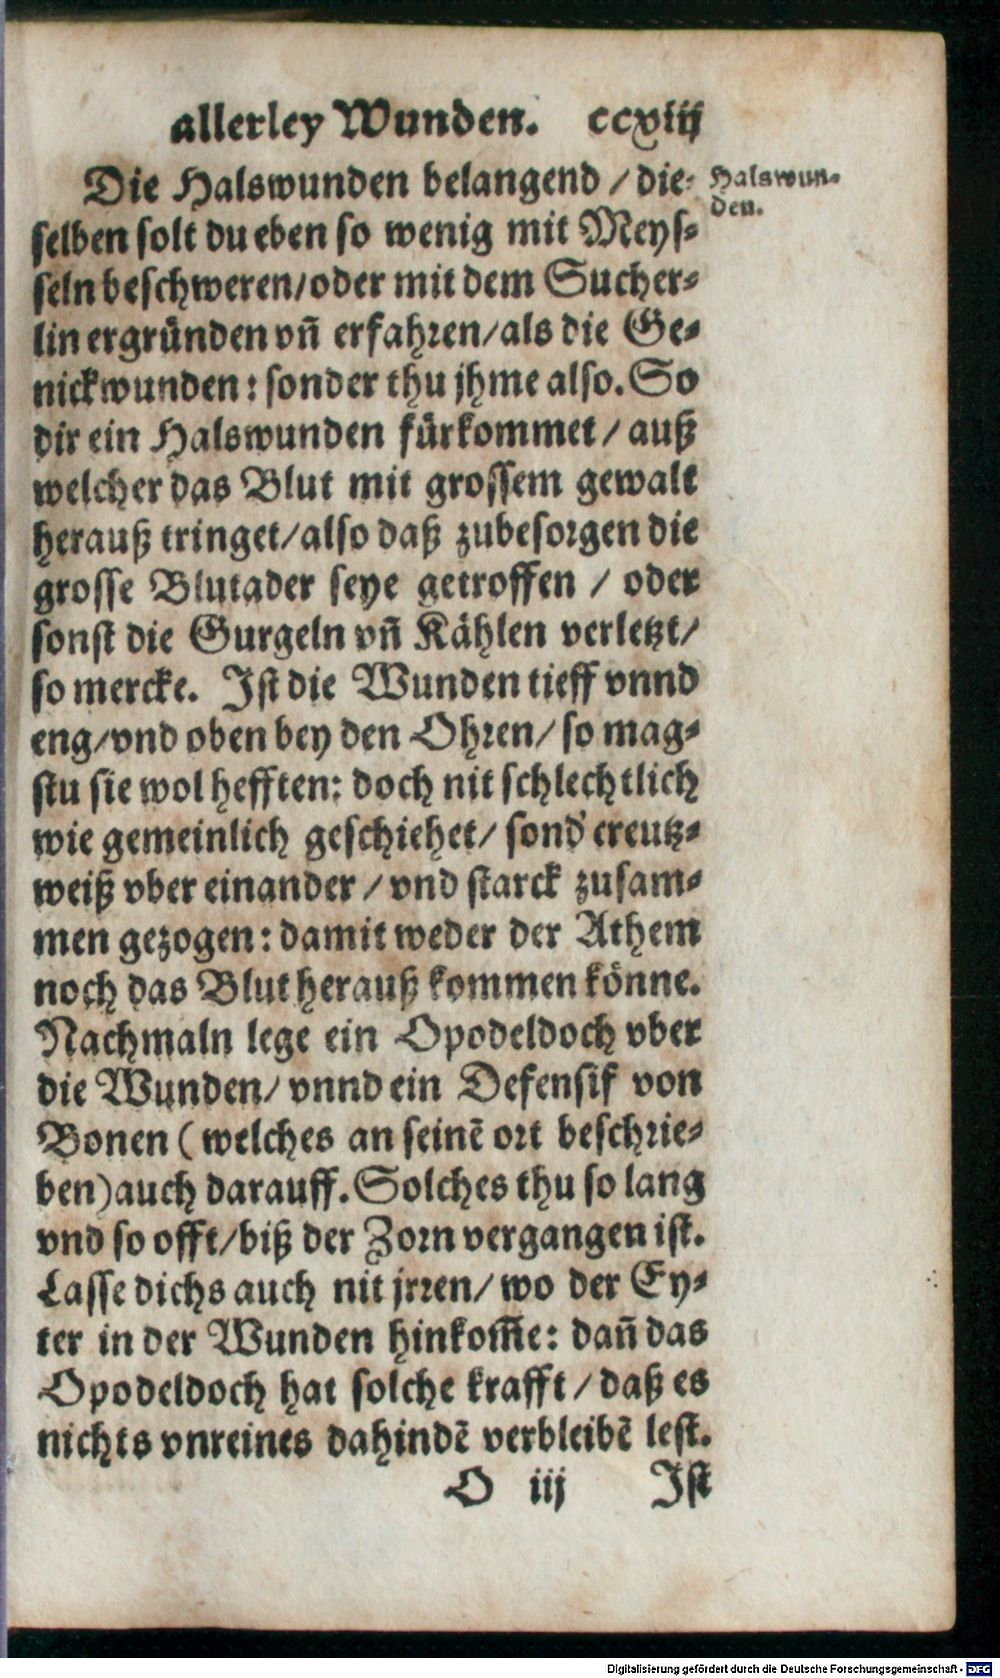 allerley Wunden. ccxiij
Die Halswunden belangend / die-
Halswun-
den.
selben solt du eben so wenig mit Meys-
seln beschweren/oder mit dem Sucher-
lin ergründen vñ erfahren/als die Ge-
nickwunden: sonder thu jhme also. So
dir ein Halswunden fürkommet/ auß
welcher das Blut mit grossem gewalt
herauß tringet/also daß zubesorgen die
grosse Blutader seye getroffen / oder
sonst die Gurgeln vñ Kählen verletzt/
so mercke. Ist die Wunden tieff vnnd
eng/vnd oben bey den Ohren/ so mag-
stu sie wol hefften: doch nit schlechtlich
wie gemeinlich geschiehet/ sond' creutz-
weiß vber einander / vnd starck zusam-
men gezogen: damit weder der Athem
noch das Blut herauß kommen könne.
Nachmaln lege ein Opodeldoch vber
die Wunden/ vnnd ein Defensif von
Bonen ( welches an seinē ort beschrie-
ben) auch darauff. Solches thu so lang
vnd so offt/biß der Zorn vergangen ist.
Lasse dichs auch nit jrren/ wo der Ey-
ter in der Wunden hinkom̃e: dañ das
Opodeldoch hat solche krafft / daß es
nichts vnreines dahindē verbleibē lest.
O iij Ist
Digitalisierung gefördert durch die Deutsche Forschungsgemeinschaft - DFG